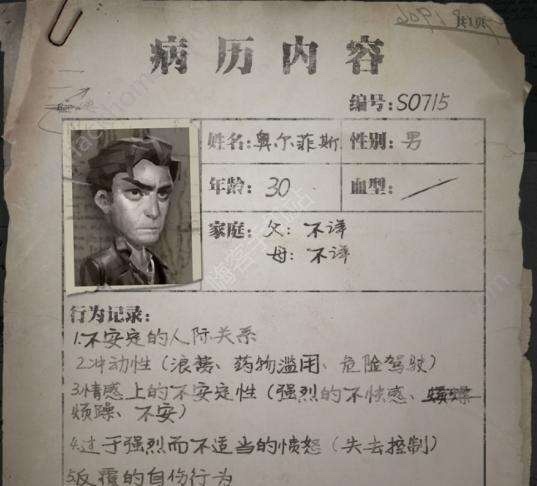 共1页
病历内容
编号:SO715
姓名:奥尔菲斯 性别:男
年龄:30 血型:
家庭:父:不详
母:不详
行为记录:
1.不安定的人际关系
2.冲动性(浪费、药物滥用、危险驾驶)
3.情感上的不安定性(强烈的不快感、烦躁
烦躁、不安)
4.过于强烈而不适当的愤怒(失去控制)
5.反覆的自伤行为